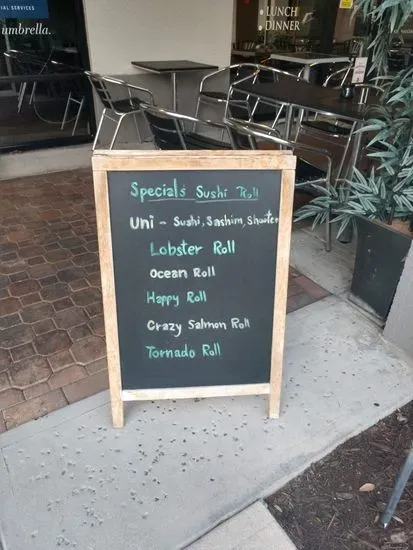 IAL SERVICES
umbrella.
LUNCH
DINNER
Specials Sushi Roll
Uni - Sushi, Sashim, Shooter
Lobster Roll
Ocean Roll
Happy Roll
Crazy Salmon Roll
Tornado Roll